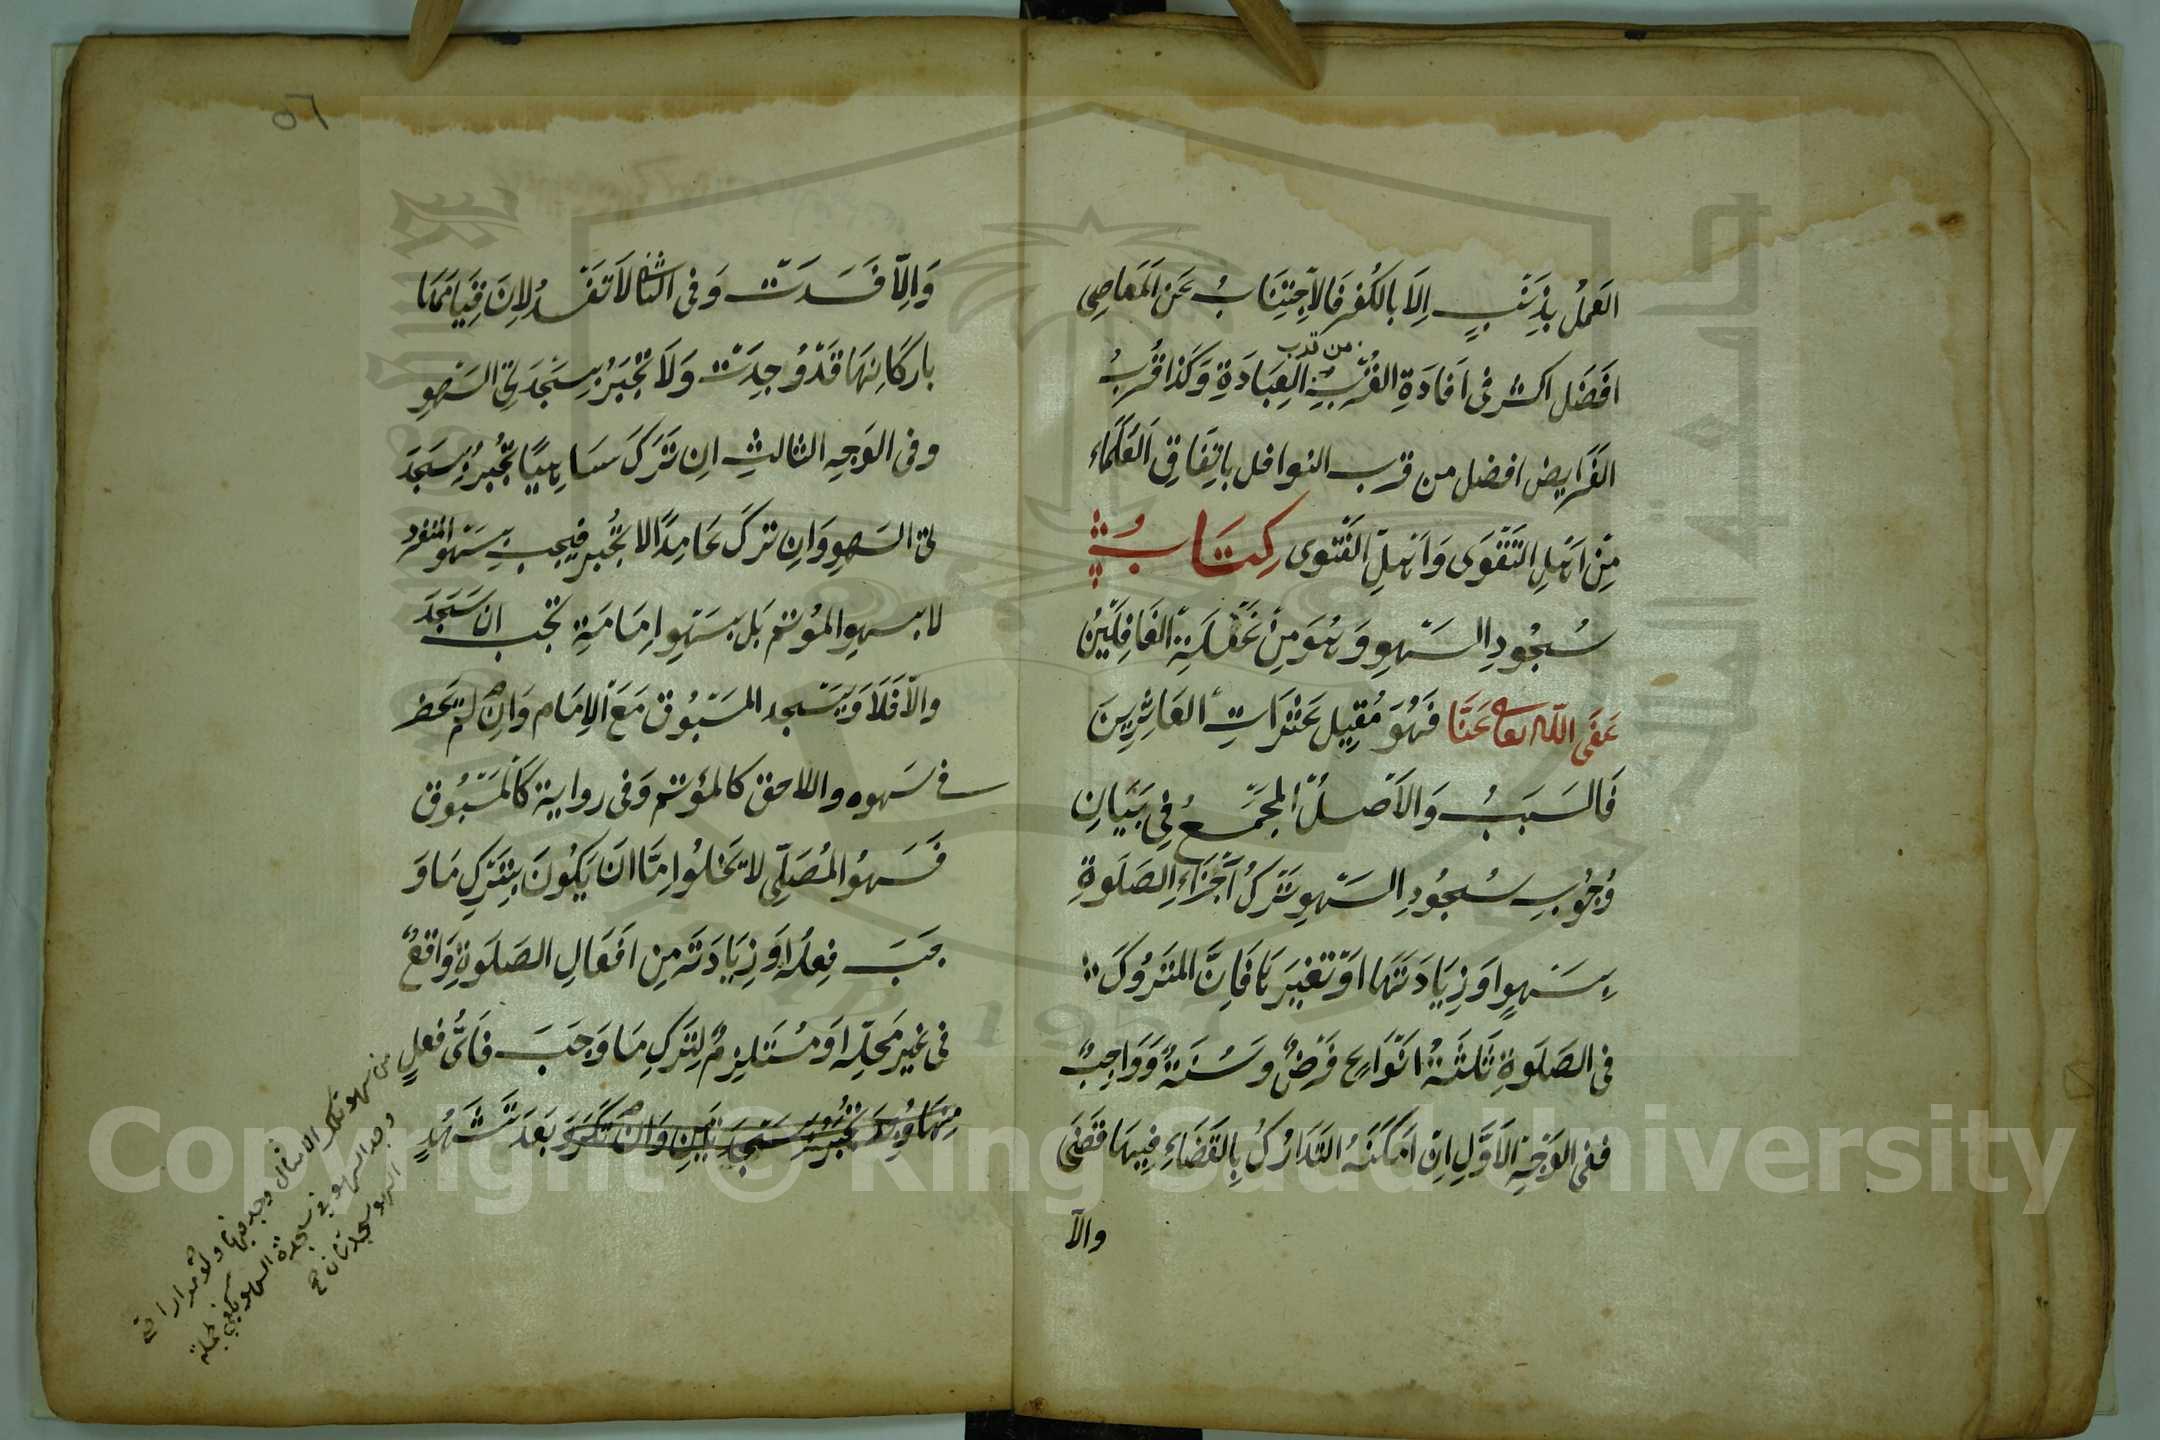 العَملُ بذِنَبٍ اِلاَ بالكُفرِ فَالاَجِتنَابُ عَن اَلمَعَاصِى
من قرب
اَفضَل اكثر فى اَفادَةِ القُربِ العِبَادَةِ وَكَذا قُربُ
الفَرايض افضل من قرب النوافل باتِفَاقِ العُلَمَاء
مِنْ اَهْلِ التَقْوَى وَاَهْلِ الفَتوى كِتَابُ
سُجُودِ السَهوِ وَهُوَ مِنْ غَفلَةِ الغَافِلَيْنَ
عَفَى اللّه تعالى عَنَّا فَهُوَ مُقِيل عَثَراتِ العَاثِرِينَ
فَالسَبَبُ وَالاَصْلُ المجمَعُ فِى بَيَانِ
وُجُوبِ سُجُودِ السَهوِ تَركُ اَجْزَاءِ الصَلَوةِ
بِسَهوٍ اوَ زِيَادَتَها اَوْ تغيَيرهَا فَاِنَّ المتَرُوكَ
فى الصَلَوةِ ثَلثَةُ اَنْوَاعٍ فَرَضٌ وَسُنَةٌ وَوَاجِبٌ
ففى الوَجْهِ الاَوَّلِ اِنْ اَمكَنَهُ التَدَارُكُ بِالقَضَاءِ فِيهَا قَضَى
والاّ
٥٦
وَاِلاّ فَسَدَتْ وَفى الثانى لاَ تفَسْدُ لاِنَ قِيَامَهَا
باركَانِهَا قَدْ وُجِدَتْ وَلاَ تُجْبَرُ بِسَجْدَتى السَهوِ
وفى الوَجهِ الثالثِ اِن تَرَكَ سَاهِيًا تُجْبَرُ بِسَجدَ
تى السَهوِ وَاِن تركَ عَامِدًا لا تُجبر فيجب بِسَهوِ المنفرد
لا بسهوِ المؤتم بَل بسَهوِ اِمَامَهِ تجب ان سَجَدَ
والاّ فَلاَ وَيَسْجد المَسْبُوق مَعَ الاِمَام وَاِن لم يحضر
فى سَهوه واللاحق كالمؤتم وَفى رواية كَالمَسْبُوق
فَسَهوُ المُصَلّى لا تخلوا اِمَّا ان يَكُونَ بِتَركِ مَا وَ
جَبَ فِعلُه اَو زِيَادَتَه مِن اَفعَالِ الصَلَوةِ وَاقعٌ
فى غير مَحلّه اَو مُستَلزِمٌ لِتَركِ مَا وَجَبَ فَاىُّ فعلٍ
مِنهَا وُجِدَ تُجْبَرُ بِسَجدَتَينِ وَاِن تَكَرَرَ بَعدَ تَشَهُدٍ
من سهو تلك الافعال وجد فيها ولو مرارا
وجد السهو فى سجدة السهو يكفى
السهو سجدتان صح